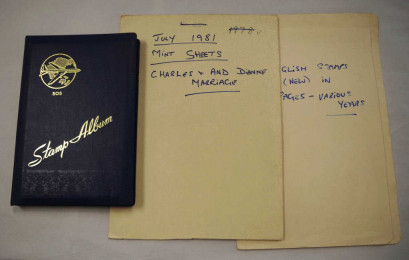 SOS
Stamp Album
1978.
JULY 1981
MINT SHEETS
CHARLES + AND DIANNE
MARRIAGE
GLISH STAMPS
(NEW) IN
AGES - VARIOUS
YEARS